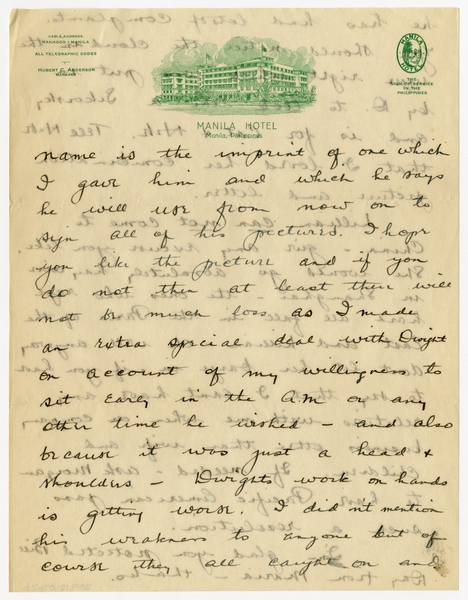 CABLE ADDRESS:
MANAGCO : MANILA
ALL TELEGRAPHIC CODES
HUBERT C. ANDERSON
MANAGER
MANILA HOTEL
Manila, Philippines
MANILA HOTEL
THE
SIGN OF SERVICE
IN THE
PHILIPPINES
name is the imprint of one which
I gave him and which he says
he will use from now on to
sign all of his pictures. I hope
you like the picture and if you
do not then at least there will
not be much loss as I made
an extra special deal with Dwight
on account of my willingness to
sit early in the AM or any
other time he wished – and also
because it was just a head &
shoulders – Dwights work on hands
is getting worse. I didn't mention
his weakness to anyone but of
course they all caught on and